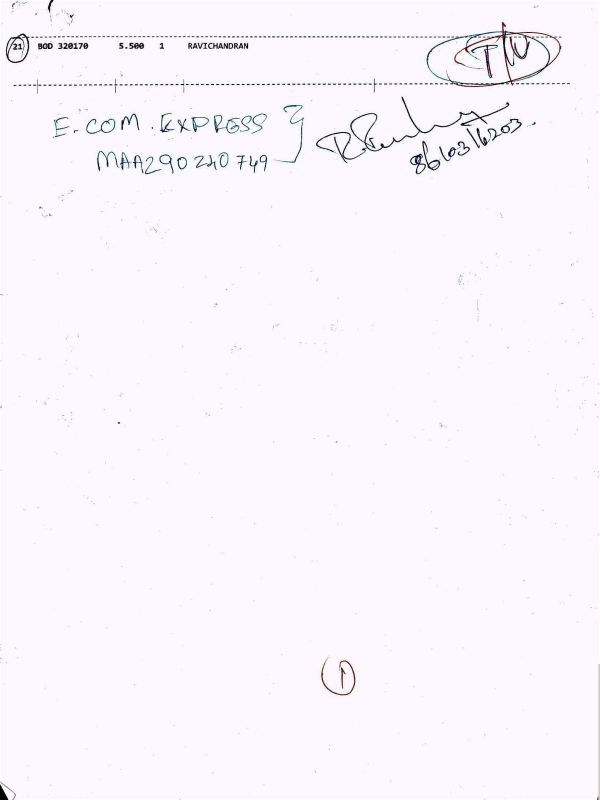 21 BOD 320170 5.500 1 RAVICHANDRAN
T/N
E.COM.EXPRESS
MAA290240749
1